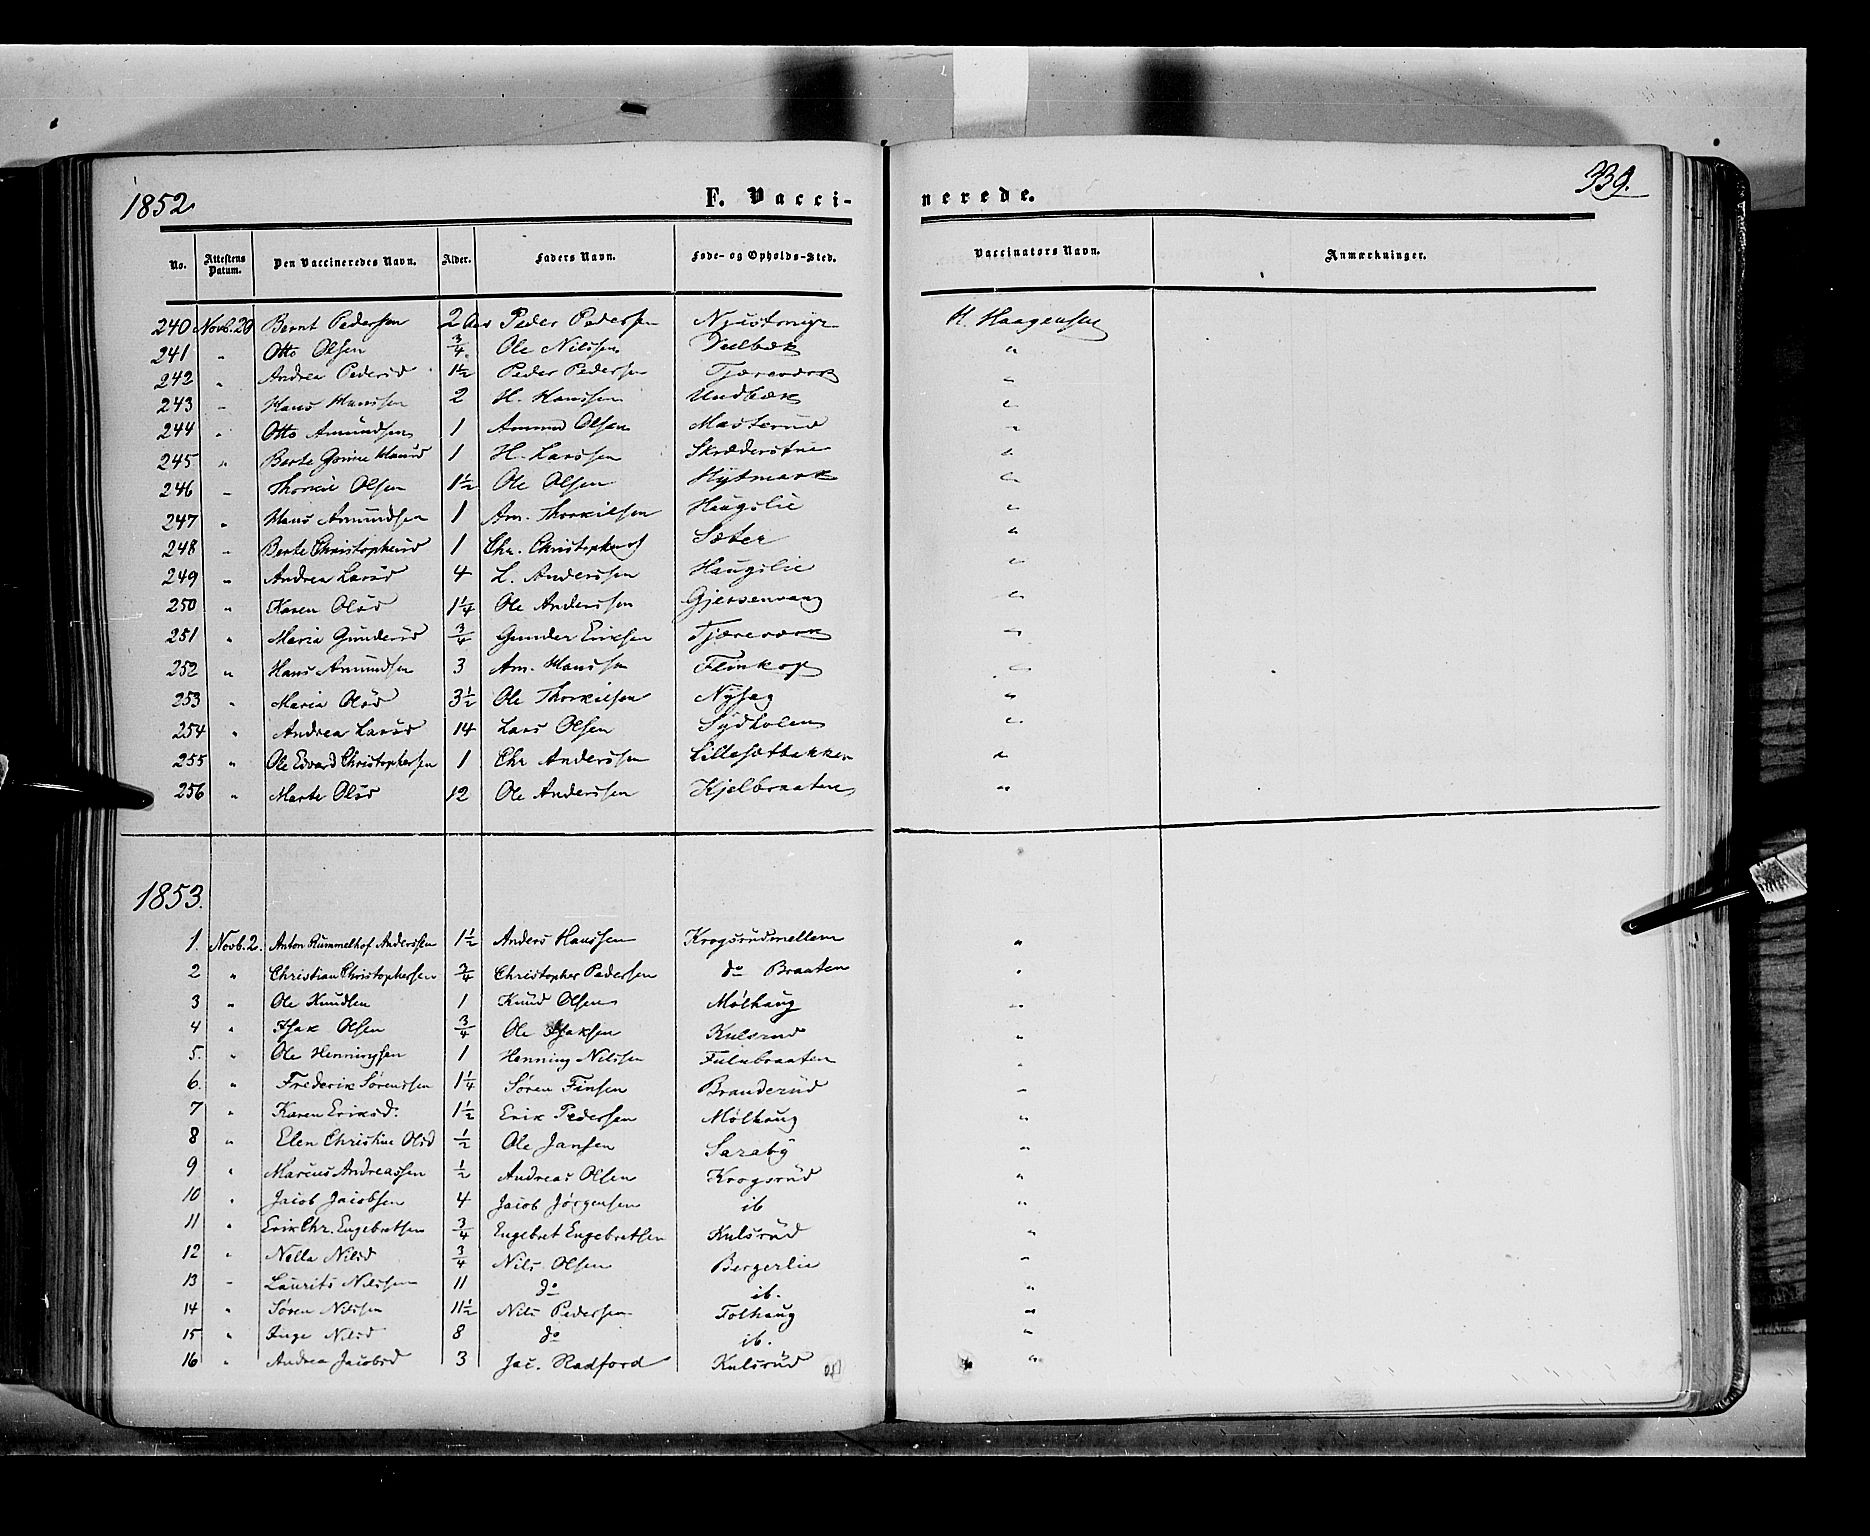 1852 F. Vacci- nerede. 339.
No. Attestens Datum. Den Vaccineredes Navn. Alder. Faders Navn. Føde- og Opholds-Sted. Vaccinators Navn. Anmærkninger.
240 Novb. 20 Bernt Pedersen 2 Aar Peder Pedersen H. Haagensen
241 " Otto Olsen 3/4 Ole Nilssen "
242 " Andrea Pedersd 1 1/2 Peder Pedersen Tjæreværk "
243 " Hans Hanssen 2 H. Hanssen Undbæk "
244 " Otto Amundsen 1 Ammund Olsen Masterud "
245 " Berte Hansd 1 H. Larssen Skrædderstue "
246 " Thorkil Olsen 1 1/2 Ole Olsen Hytmark "
247 " Hans Amundsen 1 Am. Thorkilsen Haugslie "
248 " Berte Christophersd 1 Chr. Christophers Sæter "
249 " Andrea Larsd 4 L. Anderssen Haugslie "
250 " Karen Olsd 1 1/4 Ole Anderssen Gjersenvang "
251 " Maria Gundersd 3/4 Gunder Eriksen Tjæreværk "
252 " Hans Amundsen 3 Am. Hanssen Flinkop "
253 " Maria Olsd 3 1/2 Ole Thorkilsen Nysag "
254 " Andrea Larsd 14 Lars Olsen Sydholen "
255 " Ole Edvard Christophersen 1 Chr Anderssen Lillesætbakken "
256 " Marte Olsd 12 Ole Anderssen Kjelbraaten "
1853.
1. Novb. 2. Anton Rummelhof Anderssen 1 1/2 Anders Hanssen Krogsrudmellem "
2 " Christian Christophersen 3/4 Christopher Pedersen do Braaten "
3 " Ole Knudsen 1 Knud Olsen Mølhaug "
4 " Isak Olsen 3/4 Ole Isaksen Kulsrud "
5. " Ole Henningsen 1 Henning Nilssen Fulubraaten "
6. " Frederik Sørenssen 1 1/4 Søren Finsen Branderud "
7 " Karen Eriksd. 1 1/2 Erik Pedersen Mølhaug "
8 " Elen Christine Olsd 1/2 Ole Jansen Saraby "
9 " Marcus Andreassen 1/2 Andreas Olsen Krogsrud "
10 " Jacob Jacobsen 4 Jacob Jørgensen ib "
11 " Erik Chr. Engebretsen 3/4 Engebret Engebretsen Kulsrud "
12 " Nella Nilsd 3/4 Nils Olsen Bergerlie "
13 " Laurits Nilssen 11 do ib. "
14 " Søren Nilssen 11 1/2 Nils Pedersen Tolhaug "
15 " Inge Nilsd 8 do ib. "
16 " Andrea Jacobsd 3 Jac. Radford Kulsrud "